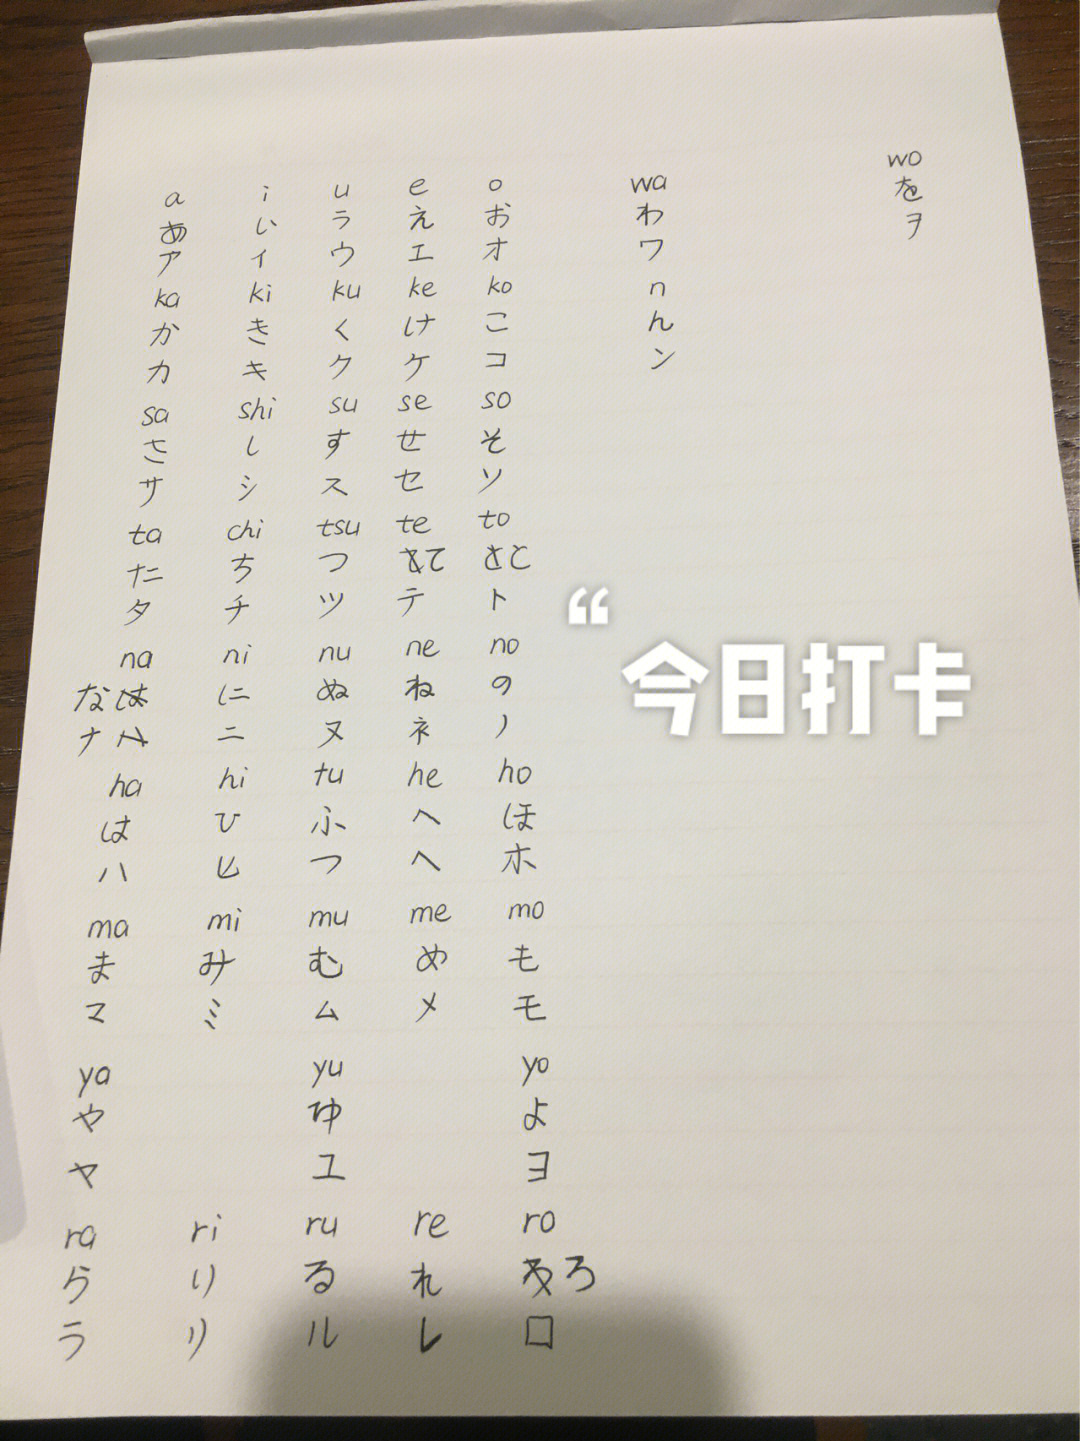 a i u e o wa wo
あ い う え お わ を
ア イ ウ エ オ ワ ヲ
ka ki ku ke ko n
か き く け こ ん
カ キ ク ケ コ ン
sa shi su se so
さ し す せ そ
サ シ ス セ ソ
ta chi tsu te to
た ち つ て と
タ チ ツ テ ト
na ni nu ne no
な に ぬ ね の
ナ ニ ヌ ネ ノ
“今日打卡
ha hi tu he ho
は ひ ふ へ ほ
ハ ヒ つ ヘ ホ
ma mi mu me mo
ま み む め も
マ ミ ム メ モ
ya yu yo
や ゆ よ
ヤ ユ ヨ
ra ri ru re ro
ら り る れ ろ
ラ リ ル レ ロ